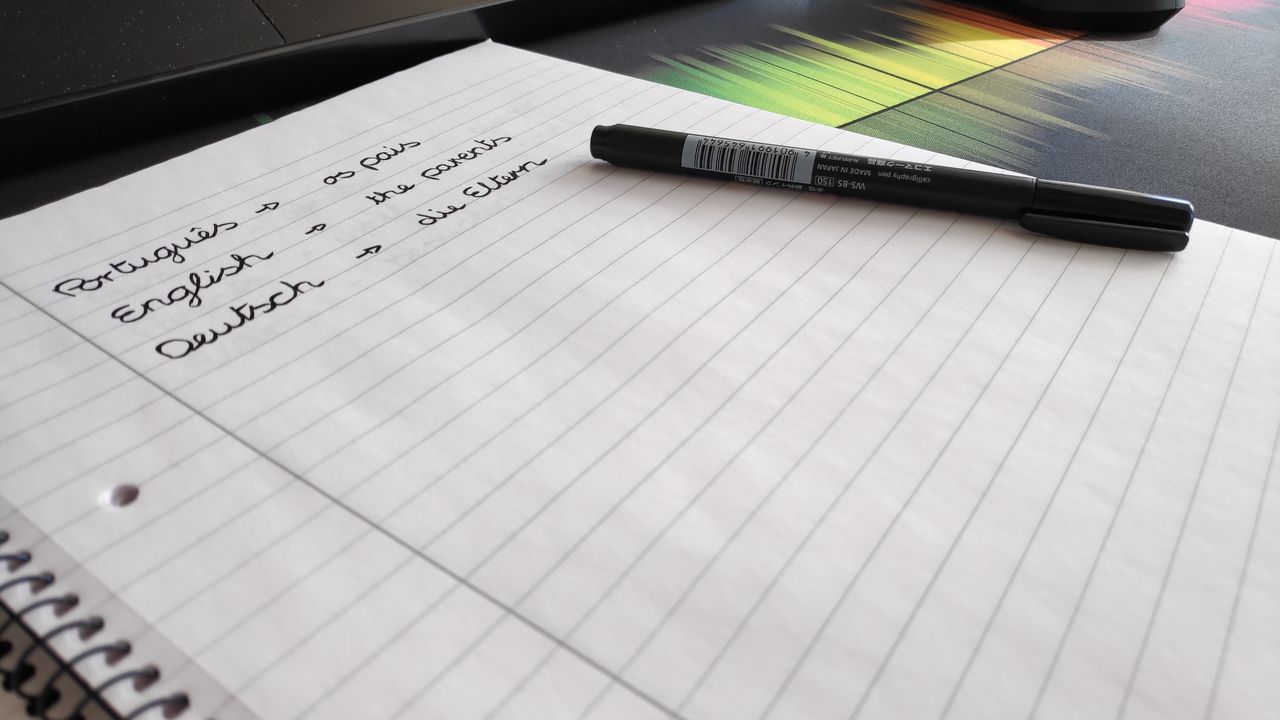 Português → os pais
English → the parents
Deutsch → die Eltern
4 901991 645644
WS-BS 150
calligraphy pen MADE IN JAPAN
エコマーク商品